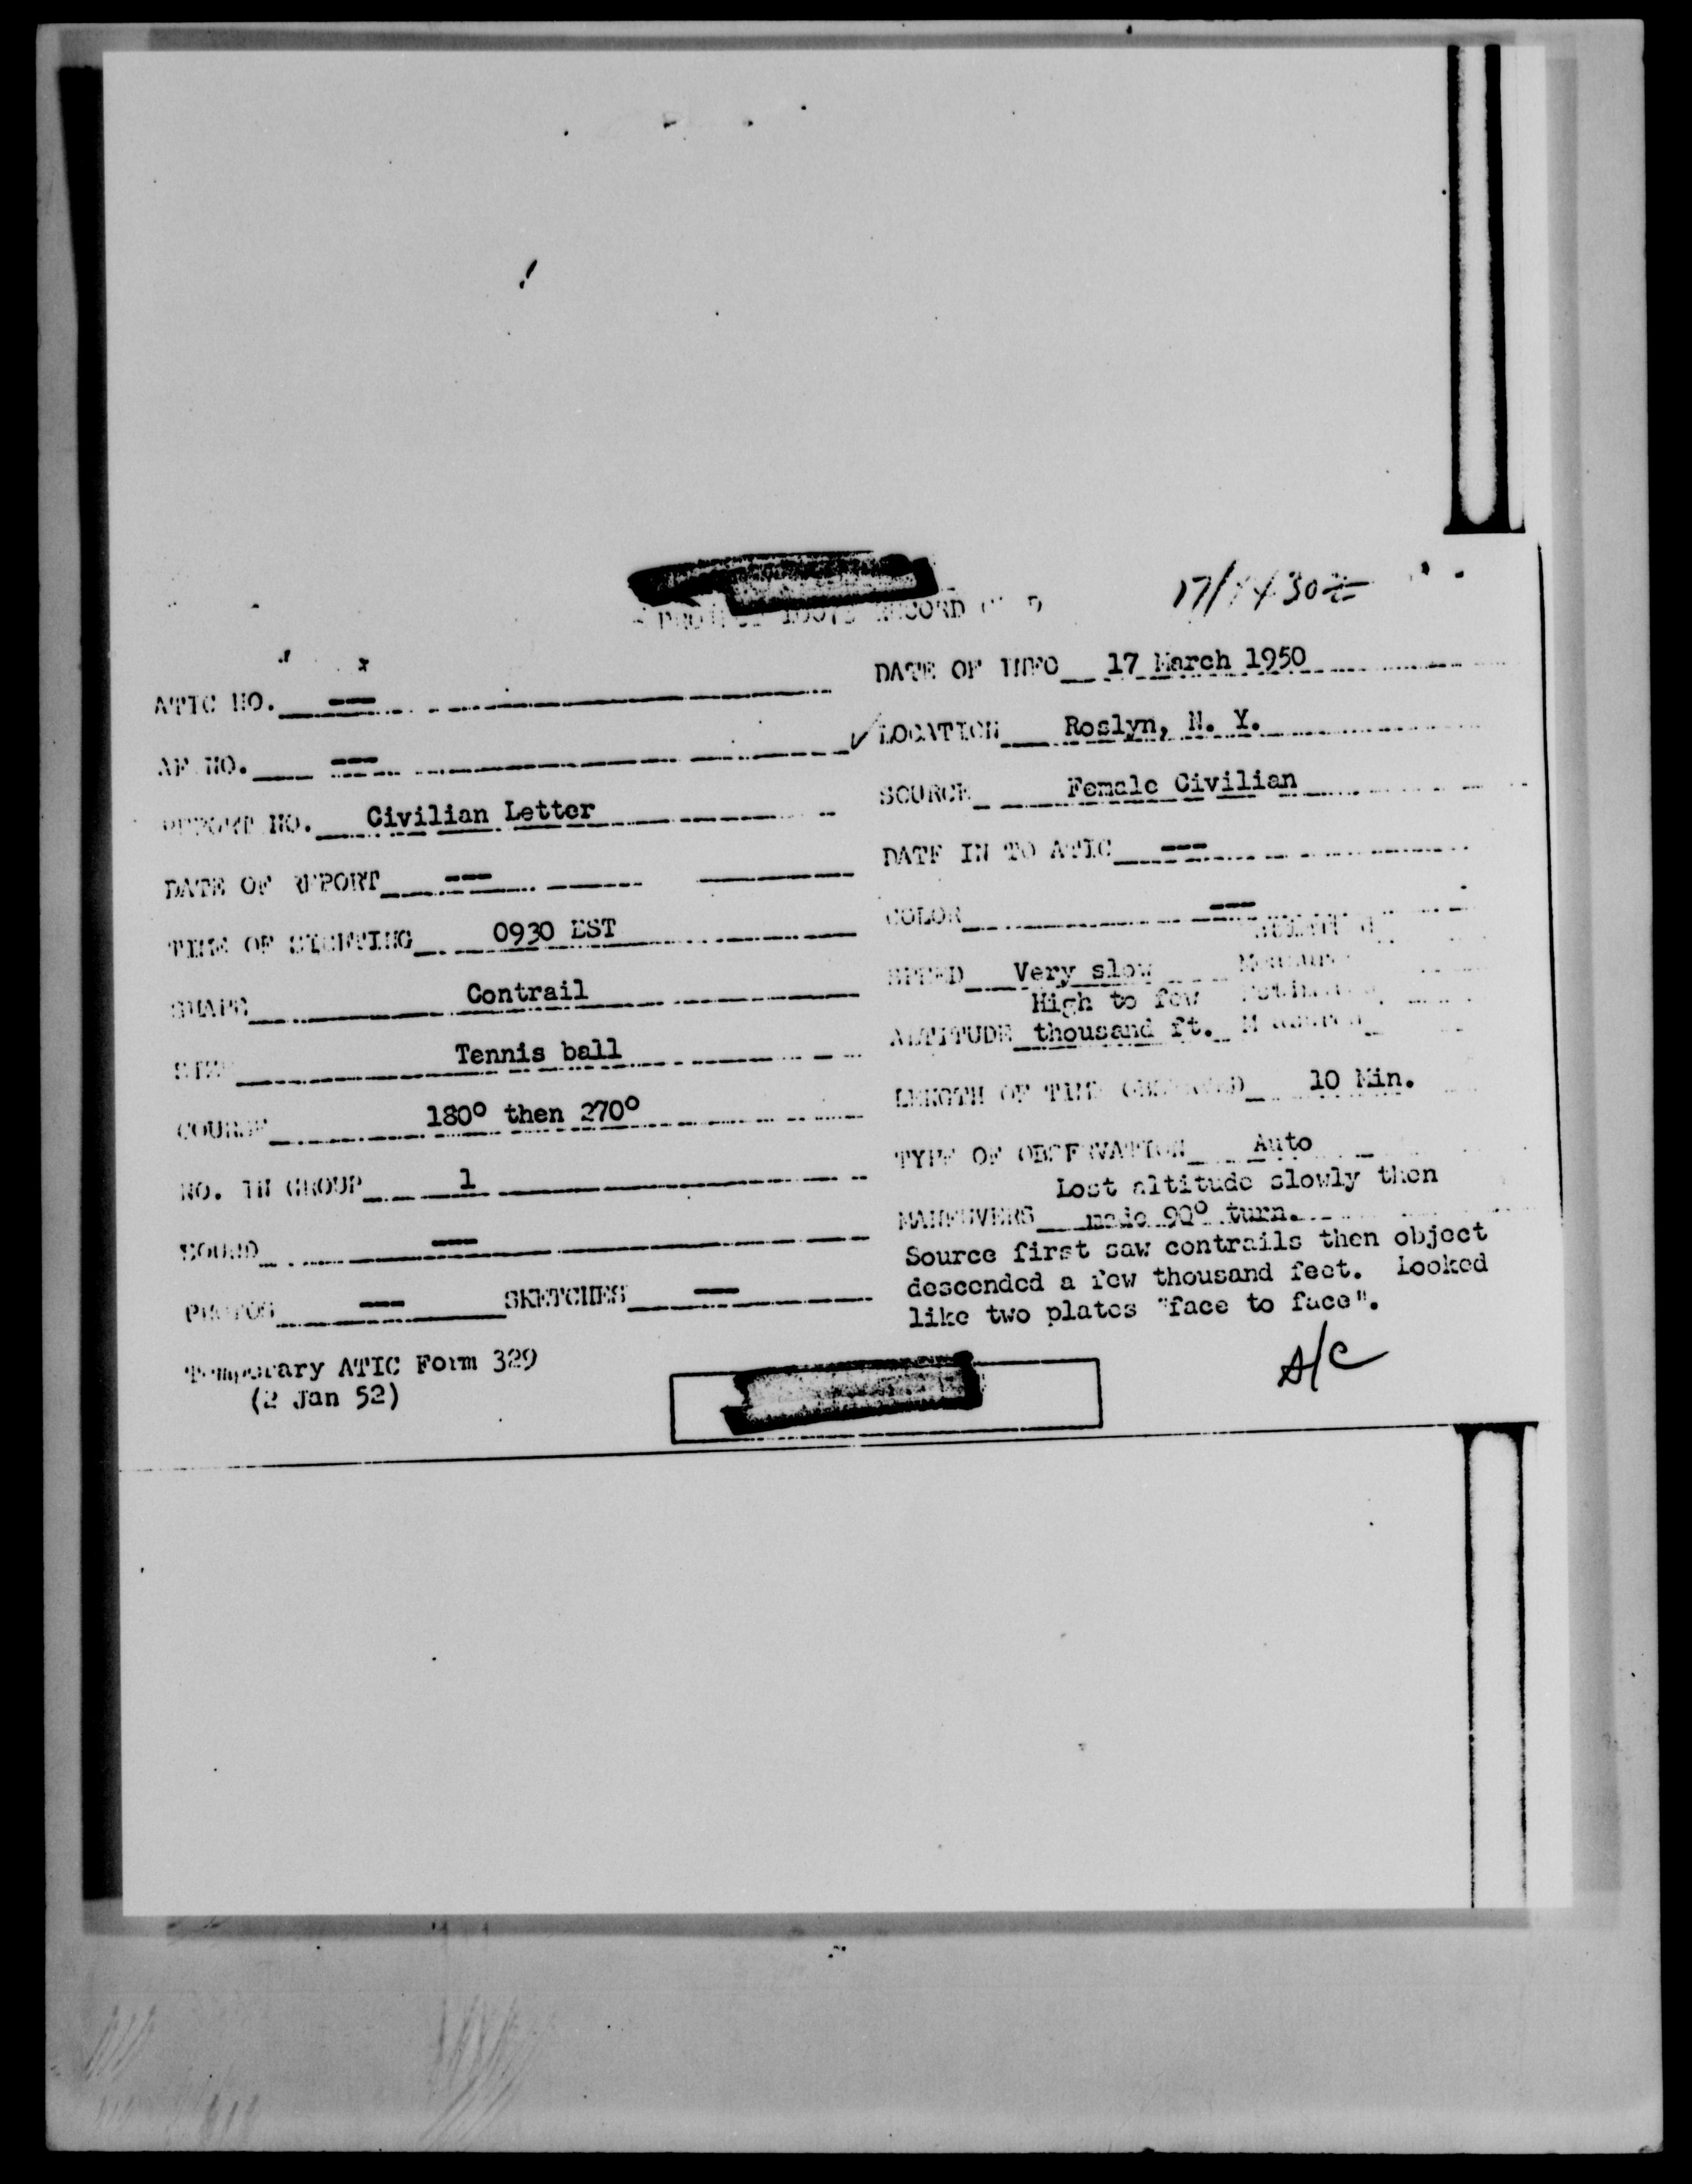 17/1430Z
RECORD
DATE OF INFO 17 March 1950
ATIC NO. --
LOCATION Roslyn, N. Y.
AF NO. --
SOURCE Female Civilian
REPORT NO. Civilian Letter
DATE IN TO ATIC --
DATE OF REPORT --
COLOR --
TIME OF SIGHTING 0930 EST
SPEED Very slow
SHAPE Contrail
High to few
ALTITUDE thousand ft.
SIZE Tennis ball
LENGTH OF TIME OBSERVED 10 Min.
COURSE 180° then 270°
TYPE OF OBSERVATION Auto
NO. IN GROUP 1
Lost altitude slowly then
MANEUVERS made 90° turn.
SOUND --
Source first saw contrails then object
descended a few thousand feet. Looked
like two plates "face to face".
PHOTOS -- SKETCHES --
Temporary ATIC Form 329
(2 Jan 52)
A/C